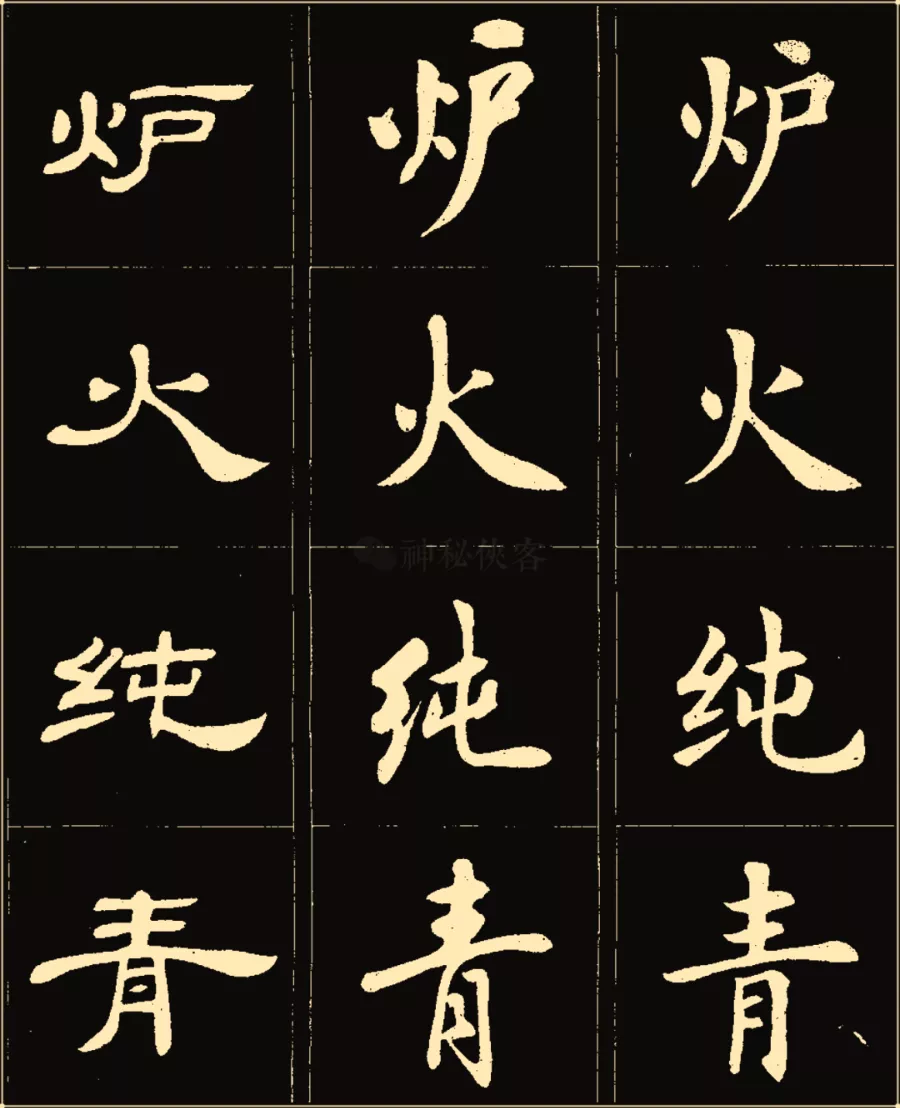 炉炉炉
火火火
神秘侠客
纯纯纯
青青青